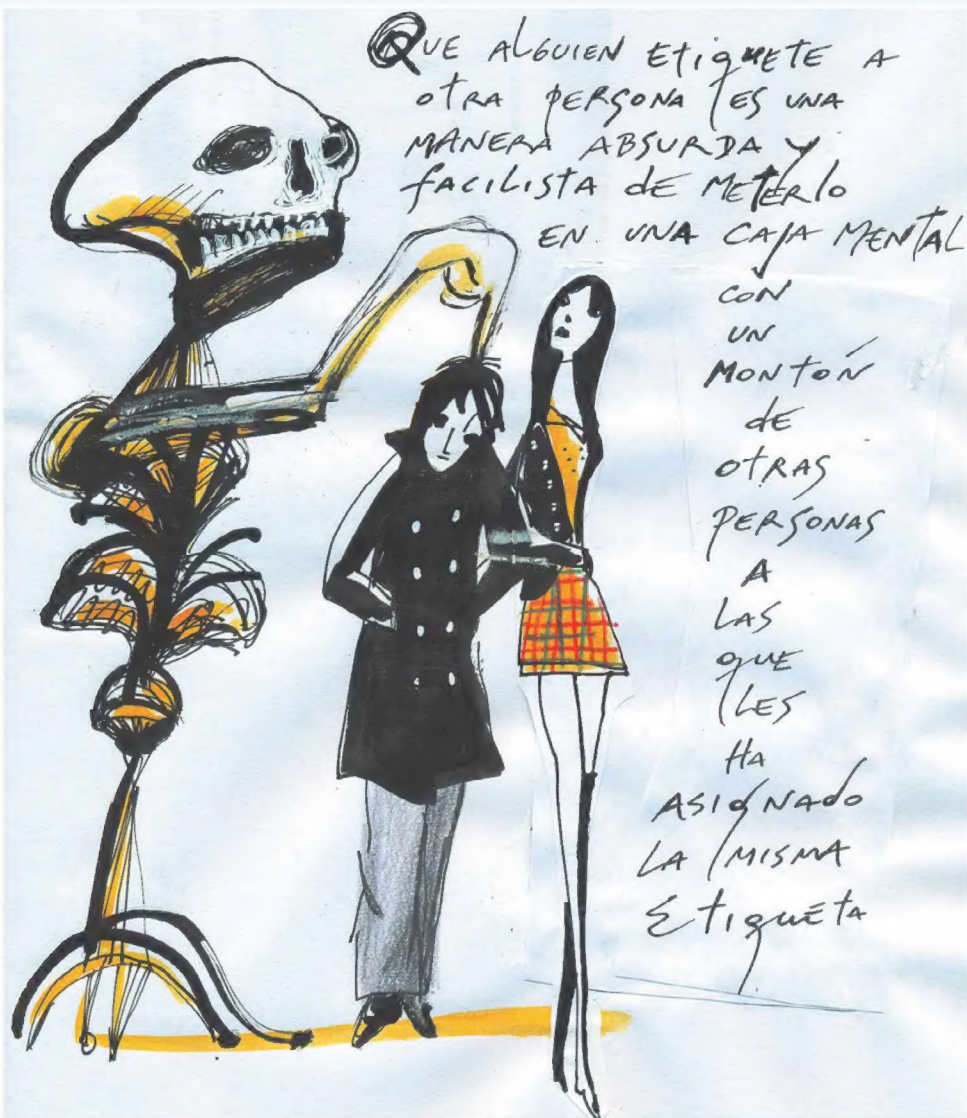 QUE ALGUIEN EtiQUETE A
OtRA PERSONA ES UNA
MANERA ABSURDA Y
fACILISTA dE METERlO
EN UNA CAJA MENTAL
CON
UN
MONtÓN
dE
OtRAS
PERSONAS
A
LAS
QUE
LES
HA
ASIGNAdO
LA MISMA
EtiquEtA